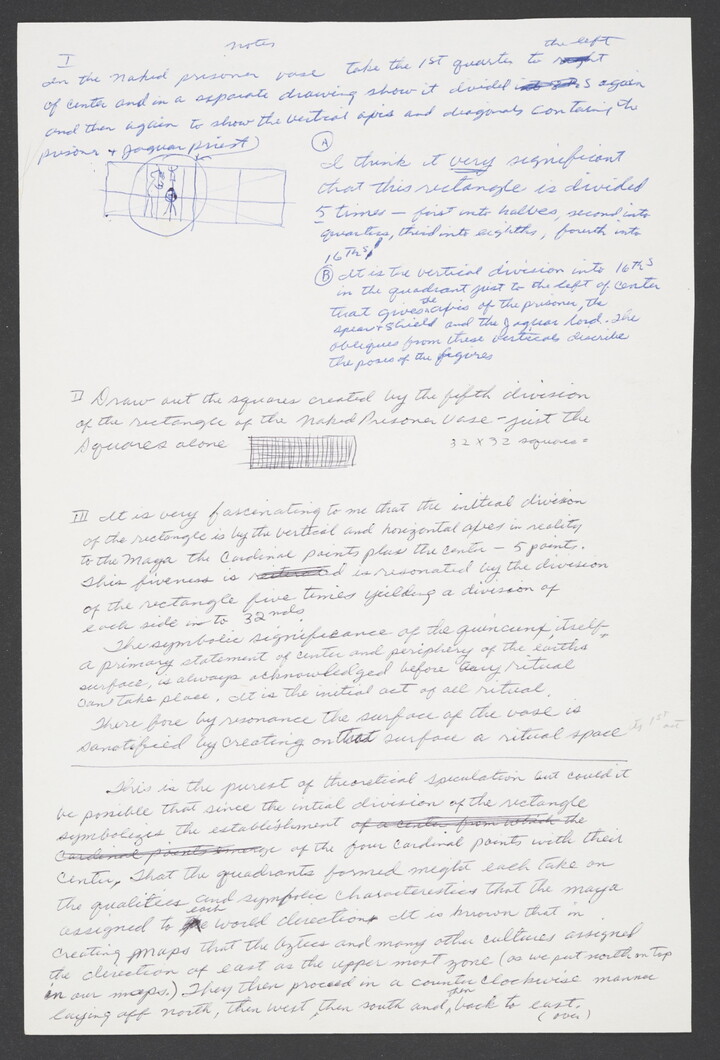 notes
I
In the naked prisoner vase take the 1st quarter to the left
of center and in a separate drawing show it divided again
and then again to show the vertical axis and diagonals containing the
prisoner + Jaguar priest)
A
I think it very significant
that this rectangle is divided
5 times – first into halves, second into
quarters, third into eighths, fourth into
16ths
B It is the vertical division into 16ths
in the quadrant just to the left of center
that gives the axis of the prisoner, the
spear + shield and the Jaguar lord. The
obliques from these verticals describe
the poses of the figures
II Draw out the squares created by the fifth division
of the rectangle of the Naked Prisoner Vase – just the
squares alone
32 X 32 squares =
III It is very fascinating to me that the initial division
of the rectangle is by the vertical and horizontal axes in reality
to the Maya the Cardinal points plus the center – 5 points.
This fiveness is resonated by the division
of the rectangle five times yielding a division of
each side in to 32nds.
The symbolic significance of the quincunx itself –
a primary statement of center and periphery of the earths
surface, is always acknowledged before any ritual
can take place. It is the initial act of all ritual.
There fore by resonance the surface of the vase is
sanctified by creating on that surface a ritual space
1st act
This is the purest of theoretical speculation but could it
be possible that since the intial division of the rectangle
symbolizes the establishment of a center from which the
Cardinal points emerge of the four cardinal points with their
center, That the quadrants formed might each take on
the qualities and symbolic characteristics that the maya
assigned to each world direction. It is known that in
creating maps that the aztecs and many other cultures assigned
the direction of east as the upper most zone (as we put north on top
in our maps.) They then proceed in a counter clockwise manner
laying off north, then west, then south and, then back to east.
(over)